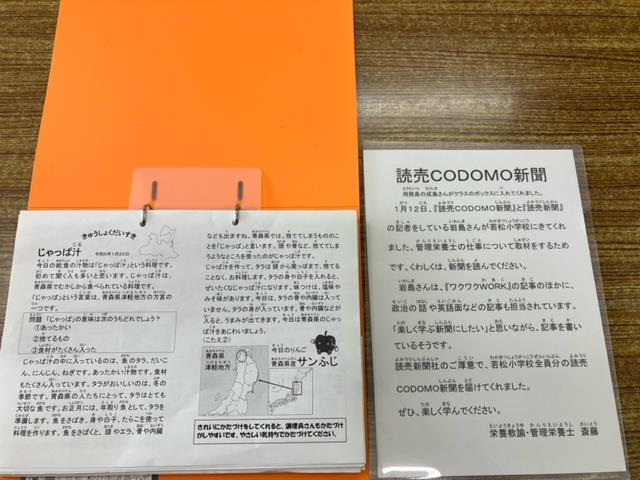 きゅうしょくだいすき
じゃっぱ汁
今日の給食の汁物は「じゃっぱ汁」という料理です。
初めて聞く人も多いと思います。じゃっぱ汁は、
青森県でむかしから食べられている料理です。
「じゃっぱ」という言葉は、青森県津軽地方の方言の
一つです。
問題 「じゃっぱ」の意味は次のうちどれでしょう?
①あったかい
②捨てるもの
③食材がたくさん入った
じゃっぱ汁の中に入っているのは、魚のタラ、だいこ
ん、にんじん、ねぎです。あったかい汁物です。食材
もたくさん入っています。タラがおいしいのは、冬の
季節です。青森県の人たちにとって、タラはとても
大切な魚です。お正月には、年取り魚として、タラを
準備します。魚をさばき、身や白子、たらこを使って
料理を作ります。魚をさばくと、頭やエラ、骨や内臓
なども出ますね。青森県では、捨ててしまうもののこ
とを「じゃっぱ」と言います。頭や骨など、捨ててしま
うようなところを使ったのがじゃっぱ汁です。
じゃっぱ汁を作って、タラは頭から尾っぽまで、捨てるこ
となく、お料理します。タラの身や白子を入れると、
ぜいたくなじゃっぱ汁になります。味つけは、塩味や
みそ味があります。今日は、タラの骨や内臓は入って
いません。タラの身が入っています。骨や内臓などが
入ると、うまみが出てきます。今日は、青森県のじゃっ
ぱ汁をあじわいましょう。
(こたえ②)
青森県
津軽地方
今日のりんご
青森県産
サンふじ
きれいにかたづけをしてくれると、調理員さんもかたづけ
がしやすいです。やさしい気持ちでかたづけてください。
読売CODOMO新聞
用務員の成島さんがクラスのボックスに入れてくれました。
1月12日、『読売CODOMO新聞』と『読売新聞』
の記者をしている岩島さんが若松小学校にきてくれ
ました。管理栄養士の仕事について取材をするため
です。くわしくは、新聞を読んでください。
岩島さんは、『ワクワクWORK』の記事のほかに、
政治の話や英語面などの記事も担当されています。
「楽しく学ぶ新聞にしたい」と思いながら、記事を書い
ているそうです。
読売新聞社のご厚意で、若松小学校全員分の読売
CODOMO新聞を届けてくれました。
ぜひ、楽しく学んでください。
栄養教諭・管理栄養士 斎藤